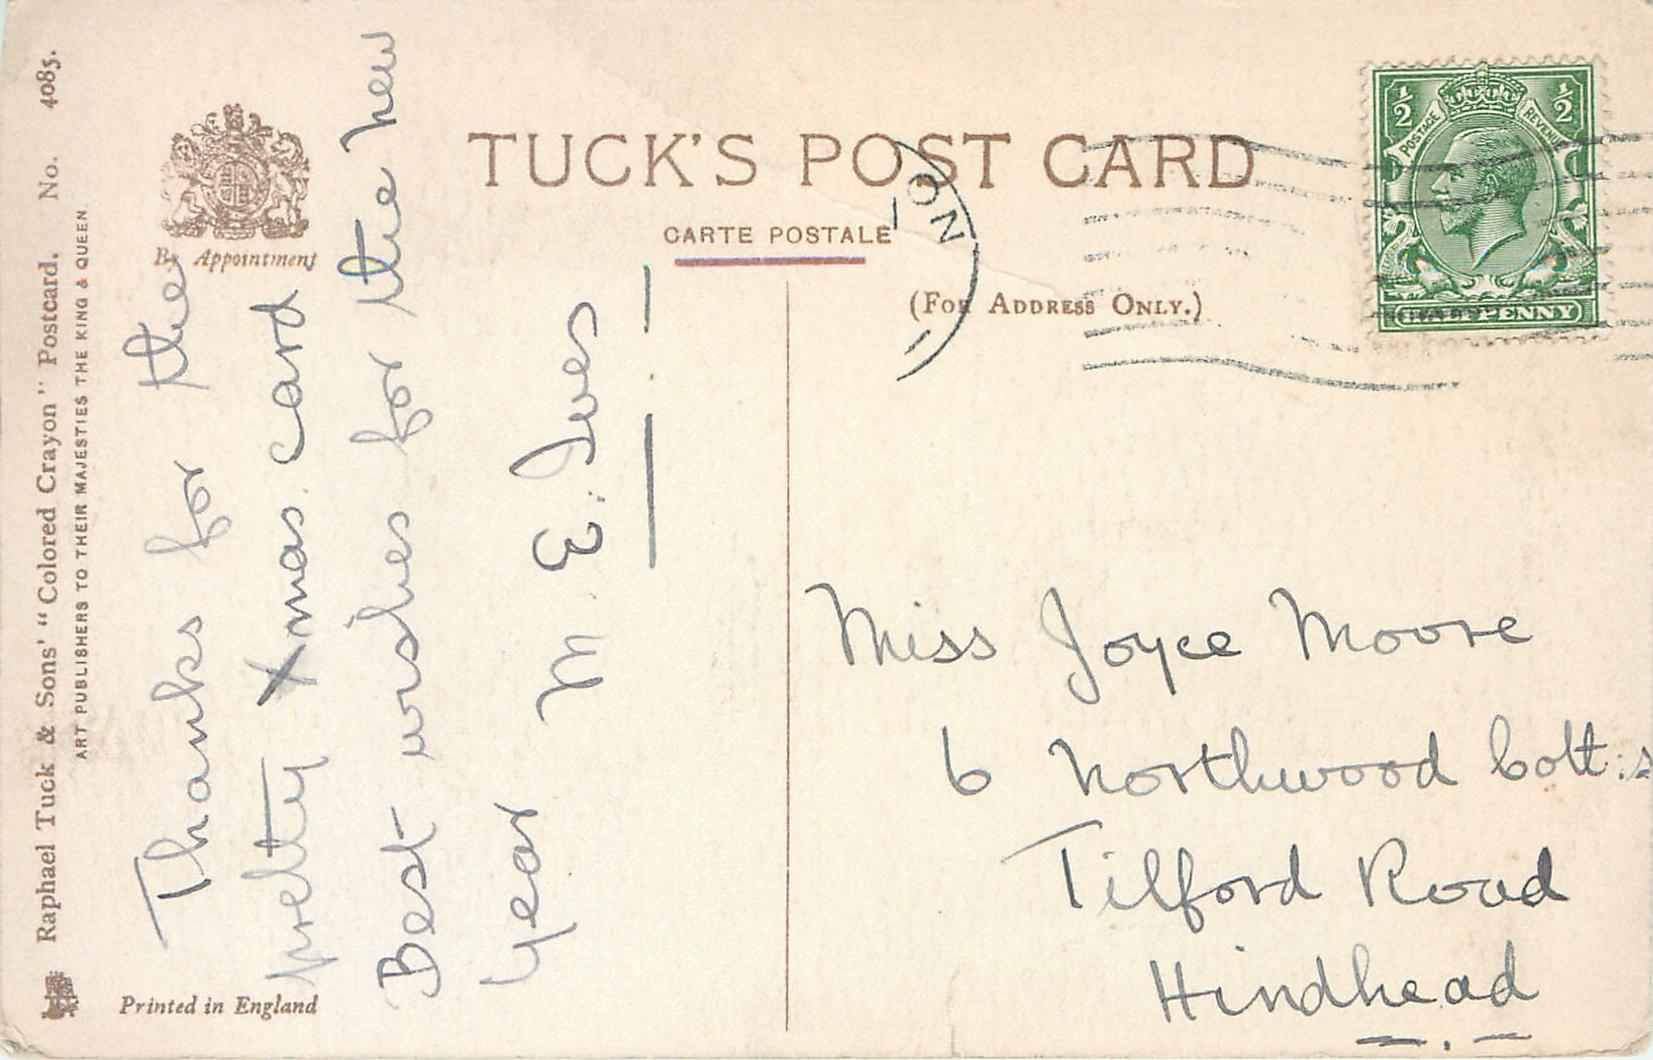 Raphael Tuck & Sons' "Colored Crayon" Postcard. No. 4085.
ART PUBLISHERS TO THEIR MAJESTIES THE KING & QUEEN
By Appointment
Printed in England
Thanks for the
pretty Xmas card
Best wishes for the new
year M. E. Ives
TUCK'S POST CARD
CARTE POSTALE
(FOR ADDRESS ONLY.)
1/2 1/2
POSTAGE REVENUE
HALFPENNY
Miss Joyce Moore
6 Northwood Cott:s
Tilford Road
Hindhead